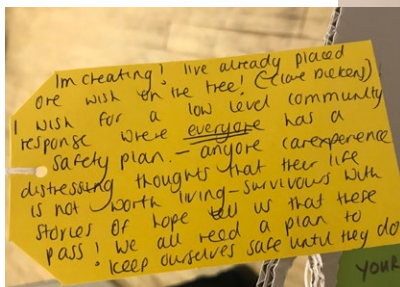 Im creating! I've already placed
one wish on the tree! (Clare Dickens)
I wish for a low level community
response where everyone has a
safety plan. - anyone can experience
distressing thoughts that their life
is not worth living - survivors with
stories of hope tell us that these
pass! We all need a plan to
keep ourselves safe until they do!
YOUR